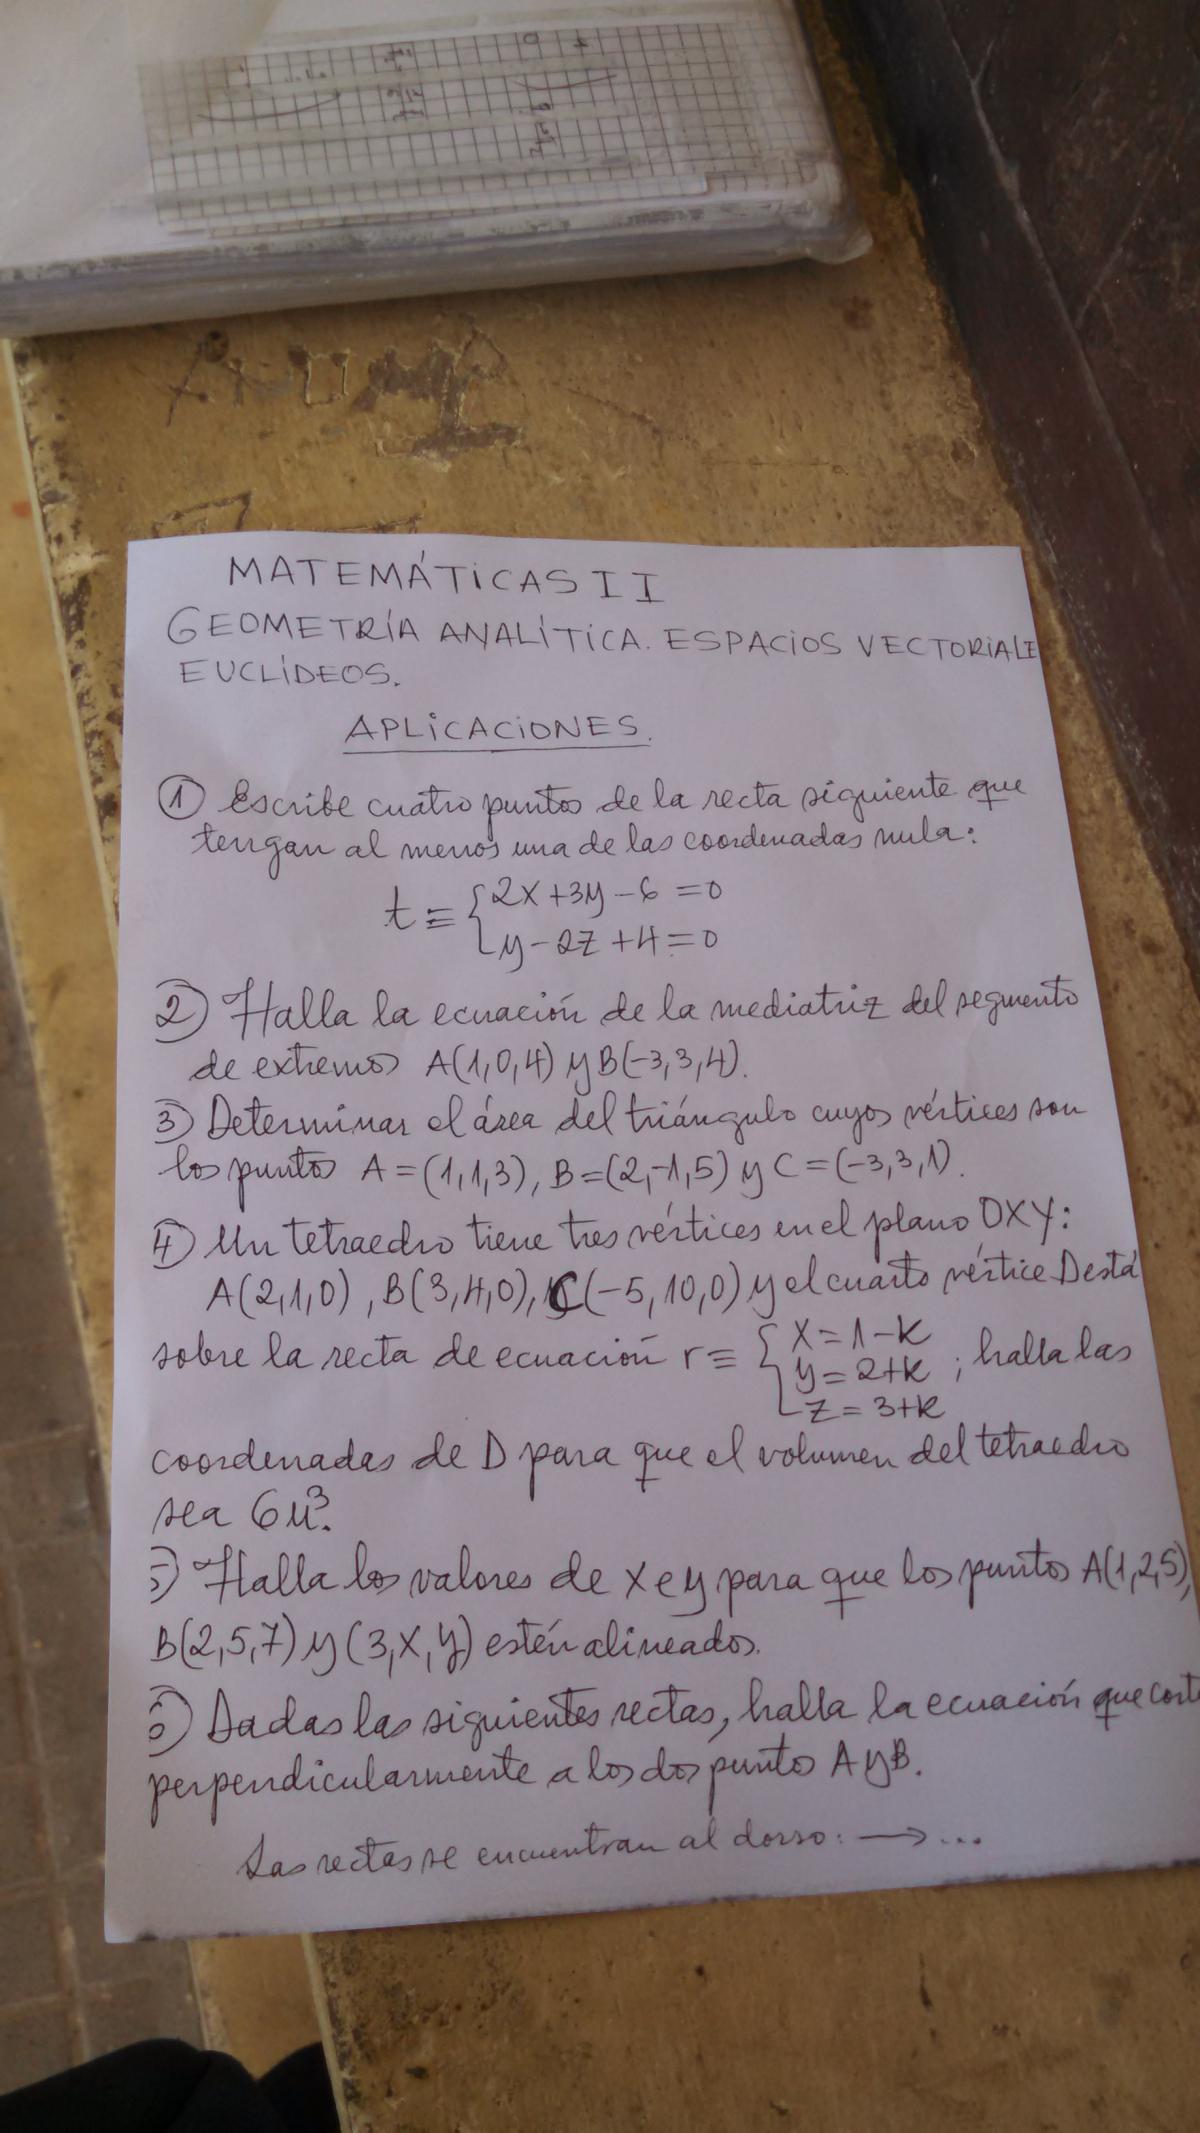 MATEMÁTICAS II
GEOMETRÍA ANALÍTICA. ESPACIOS VECTORIALE
EUCLÍDEOS.
APLICACIONES.
① Escribe cuatro puntos de la recta siguiente que
tengan al menos una de las coordenadas nula:
t ≡ { 2x+3y-6=0
y-2z+4=0
② Halla la ecuación de la mediatriz del segmento
de extremos A(1,0,4) y B(-3,3,4).
③ Determinar el área del triángulo cuyos vértices son
los punto A=(1,1,3), B=(2,-1,5) y C=(-3,3,1).
④ Un tetraedro tiene tres vértices en el plano OXY:
A(2,1,0), B(3,4,0), C(-5,10,0) y el cuarto vértice D está
sobre la recta de ecuación r ≡ { x=1-k
y=2+k ; halla las
z=3+k
coordenadas de D para que el volumen del tetraedro
sea 6u³.
5) Halla los valores de x e y para que los puntos A(1,2,5),
B(2,5,7) y (3,x,y) estén alineados.
6) Dadas las siguientes rectas, halla la ecuación que corte
perpendicularmente a los dos punto A y B.
Las rectas se encuentran al dorso: → ...